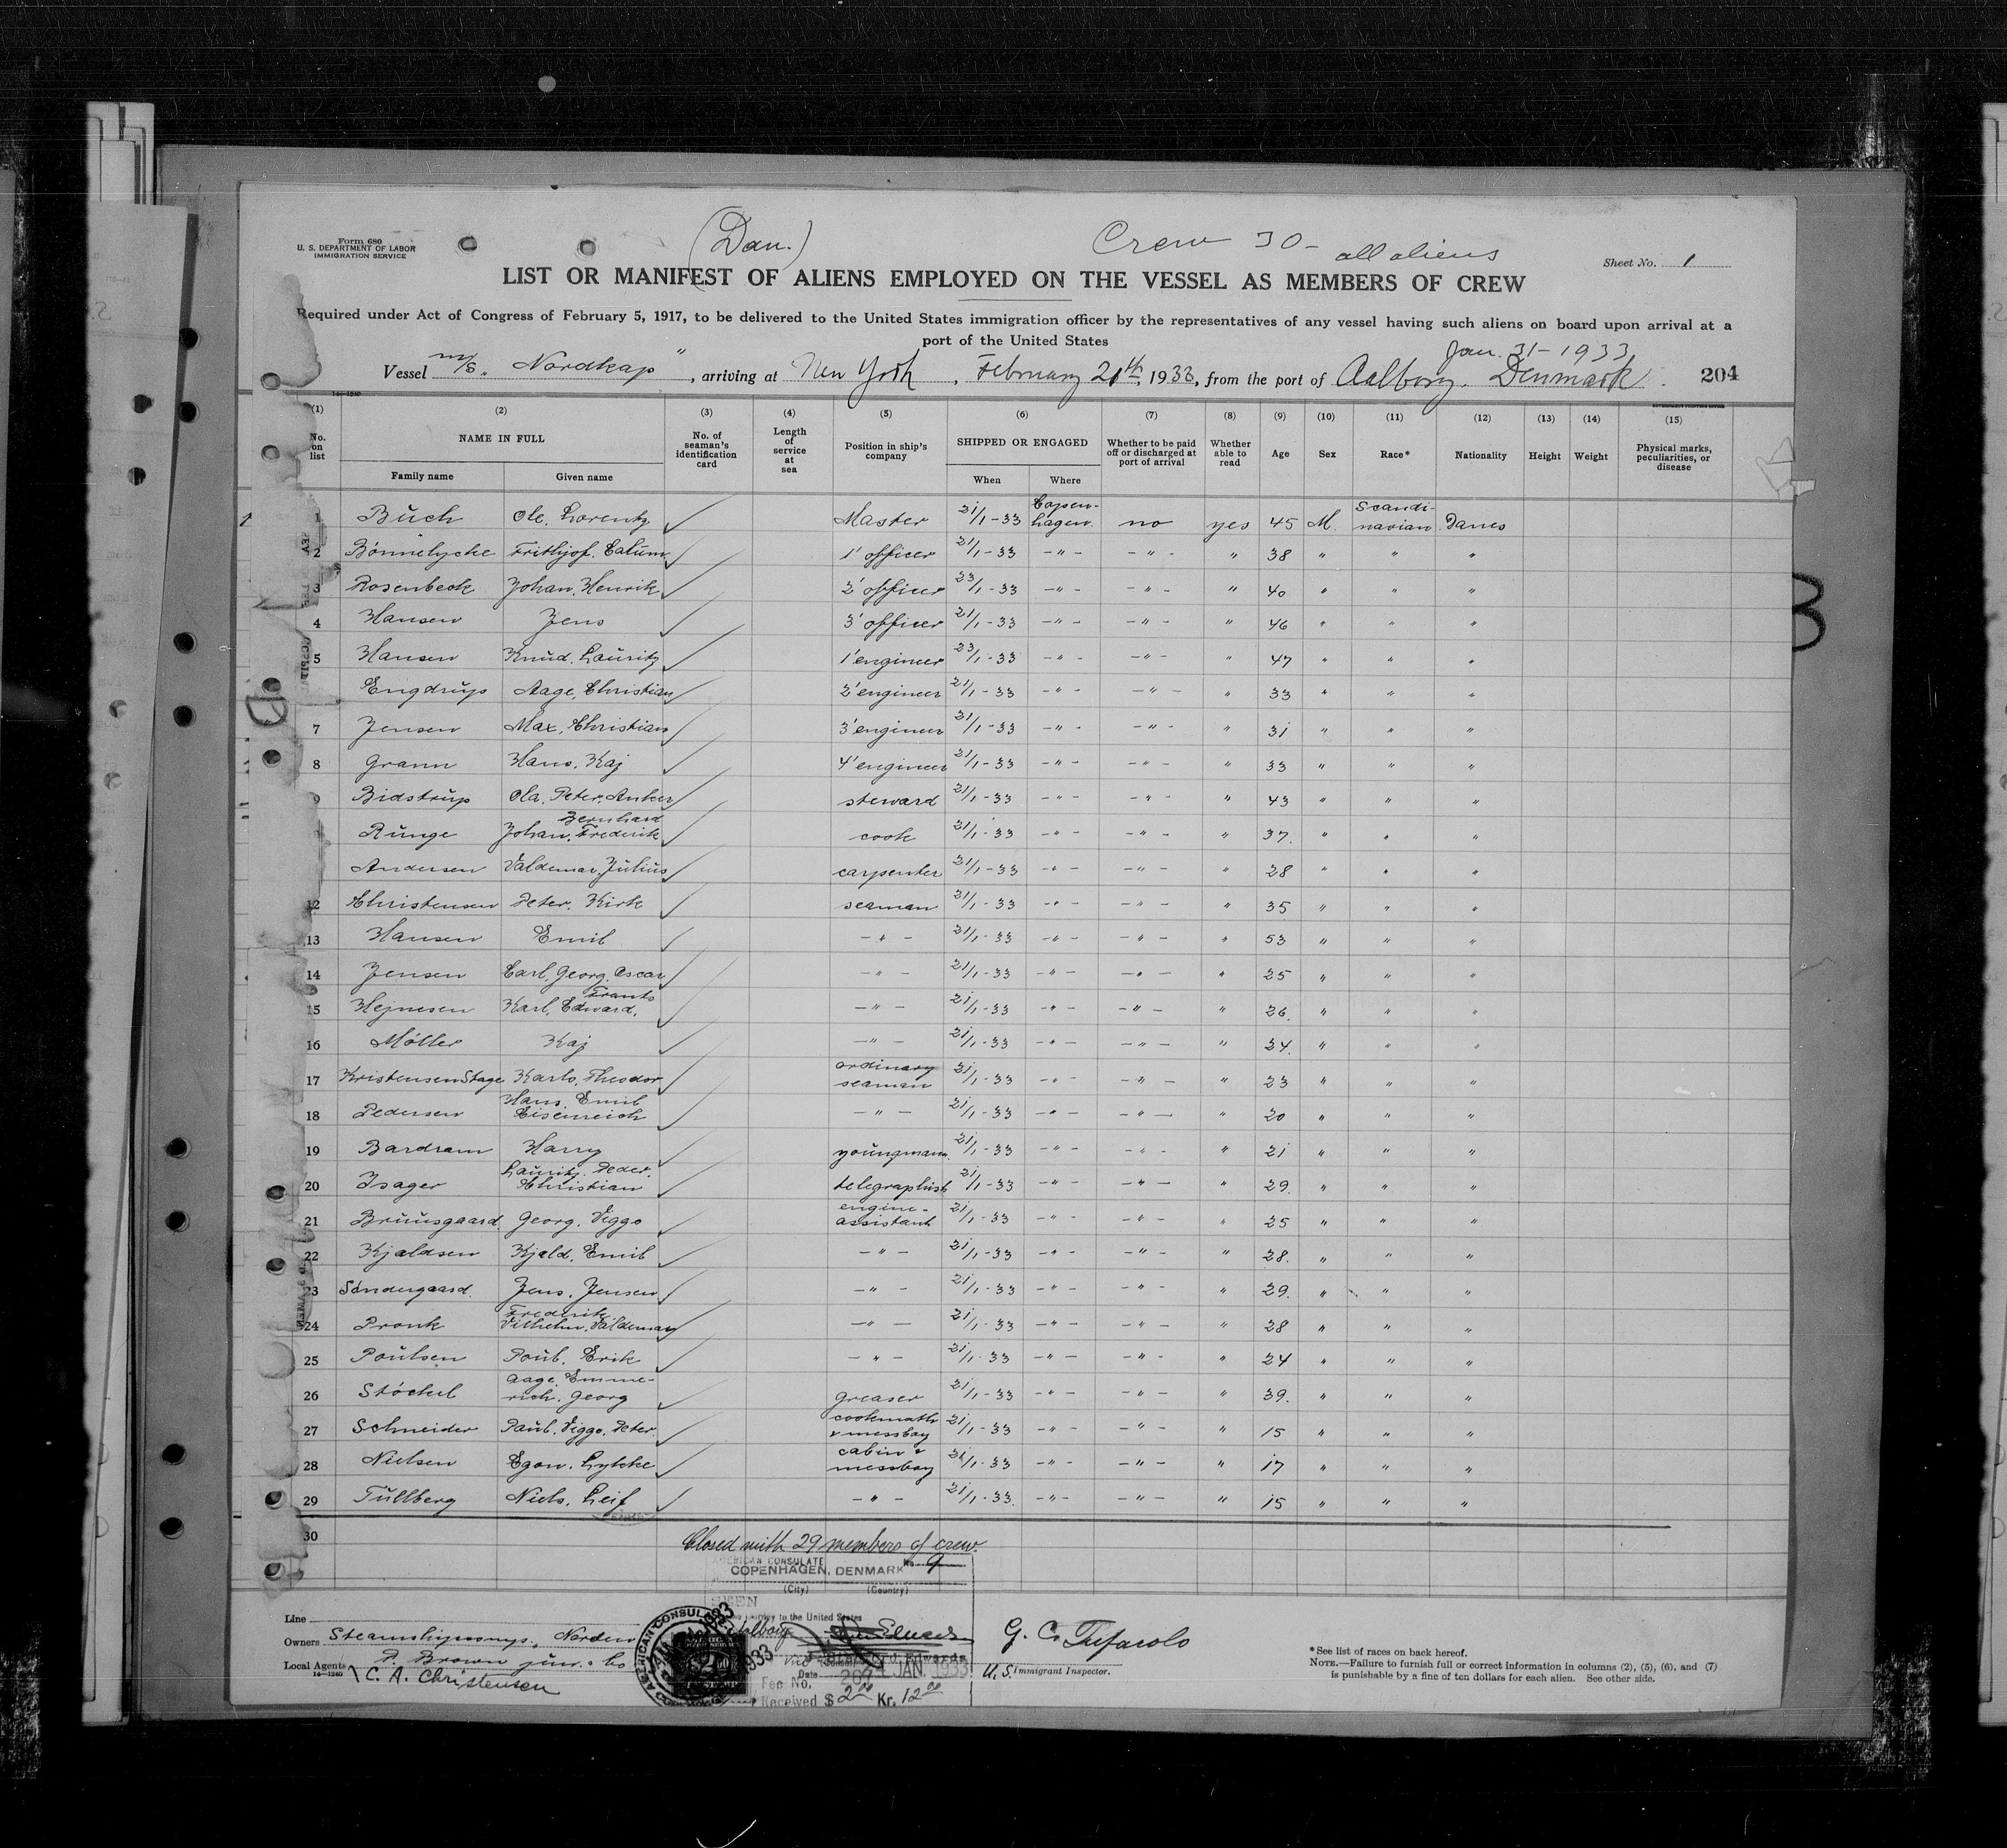 Form 680
U. S. DEPARTMENT OF LABOR
IMMIGRATION SERVICE
(Dan.)
Crew 30 - all aliens
Sheet No. 1
LIST OR MANIFEST OF ALIENS EMPLOYED ON THE VESSEL AS MEMBERS OF CREW
Required under Act of Congress of February 5, 1917, to be delivered to the United States immigration officer by the representatives of any vessel having such aliens on board upon arrival at a
port of the United States
Jan. 31 - 1933
Vessel m/s. "Nordkap", arriving at New York, February 21th, 1933, from the port of Aalborg. Denmark. 204
14-1240
(1) (2) (3) (4) (5) (6) (7) (8) (9) (10) (11) (12) (13) (14) (15)
No. on list NAME IN FULL Family name Given name No. of seaman's identification card Length of service at sea Position in ship's company SHIPPED OR ENGAGED When Where Whether to be paid off or discharged at port of arrival Whether able to read Age Sex Race* Nationality Height Weight Physical marks, peculiarities, or disease
1 Büch Ole, Lorentz Master 21/1-33 Copenhagen. no yes 45 M. Scandinavian Danes
2 Bønnelycke Frithjof. 1' officer 21/1-33 -"- -"- " 38 " " "
3 Rosenbeck Johan, Henrik 2' officer 23/1-33 -"- -"- " 40 " " "
4 Hansen Jens 3' officer 21/1-33 -"- -"- " 46 " " "
5 Hansen Knud, Lauritz 1' engineer 23/1-33 -"- -"- " 47 " " "
Engdrup Aage, Christian 2' engineer 21/1-33 -"- -"- " 33 " " "
7 Jensen Max, Christian 3' engineer 21/1-33 -"- -"- " 31 " " "
8 Grann Hans, Kaj 4' engineer 21/1-33 -"- -"- " 33 " " "
9 Bidstrup Ola, Peter, Anker steward 21/1-33 -"- -"- " 43 " " "
Runge Johan, Bernhard Frederik cook 21/1-33 -"- -"- " 37. " " "
Andersen Valdemar, Julius carpenter 21/1-33 -"- -"- " 28 " " "
12 Christensen Peter, Kirk seaman 21/1-33 -"- -"- " 35 " " "
13 Hansen Emil -"- 21/1-33 -"- -"- " 53 " " "
14 Jensen Carl, Georg, Oscar -"- 21/1-33 -"- -"- " 25 " " "
15 Hejnesen Karl, Edward, Frants -"- 21/1-33 -"- -"- " 26. " " "
16 Møller Kaj -"- 21/1-33 -"- -"- " 24. " " "
17 Kristensen Stage Karlo, Theodor ordinary seaman 21/1-33 -"- -"- " 23 " " "
18 Pedersen Hans, Emil Eisenreich -"- 21/1-33 -"- -"- " 20 " " "
19 Bardram Harry youngmann. 21/1-33 -"- -"- " 21 " " "
20 Isager Lauritz. Peder. Christian telegraphist 21/1-33 -"- -"- " 29. " " "
21 Bruusgaard Georg, Viggo engine-assistant 21/1-33 -"- -"- " 25 " " "
22 Kjældsen Kjeld, Emil -"- 21/1-33 -"- -"- " 28. " " "
23 Søndergaard. Jens, Jensen -"- 21/1-33 -"- -"- " 29. " " "
24 Pronk Frederik Vilhelm, Valdemar -"- 21/1-33 -"- -"- " 28 " " "
25 Poulsen Poul, Erik -"- 21/1-33 -"- -"- " 24 " " "
26 Støckel Aage, Emmerich, Georg greaser 21/1-33 -"- -"- " 39. " " "
27 Schneider Paul, Viggo, Peter cookmath & messboy 21/1-33 -"- -"- " 15 " " "
28 Nielsen Egon, Lykke cabin & messboy 21/1-33 -"- -"- " 17 " " "
29 Tullberg Niels, Leif -"- 21/1-33. -"- -"- " 15 " " "
30
Closed with 29 members of crew.
AMERICAN CONSULATE No. 9
COPENHAGEN, DENMARK
(City) (Country)
SEEN
to the United States
Aalborg
Date 24 JAN. 1933
Fee No. 207
Received $ 2.00 Kr. 12.00
Line
Owners Norden
Local Agents P. Brown jun. & Co
C. A. Christensen
14-1240
G. C. Tufarolo
U. S. Immigrant Inspector.
*See list of races on back hereof.
NOTE.—Failure to furnish full or correct information in columns (2), (5), (6), and (7)
is punishable by a fine of ten dollars for each alien. See other side.